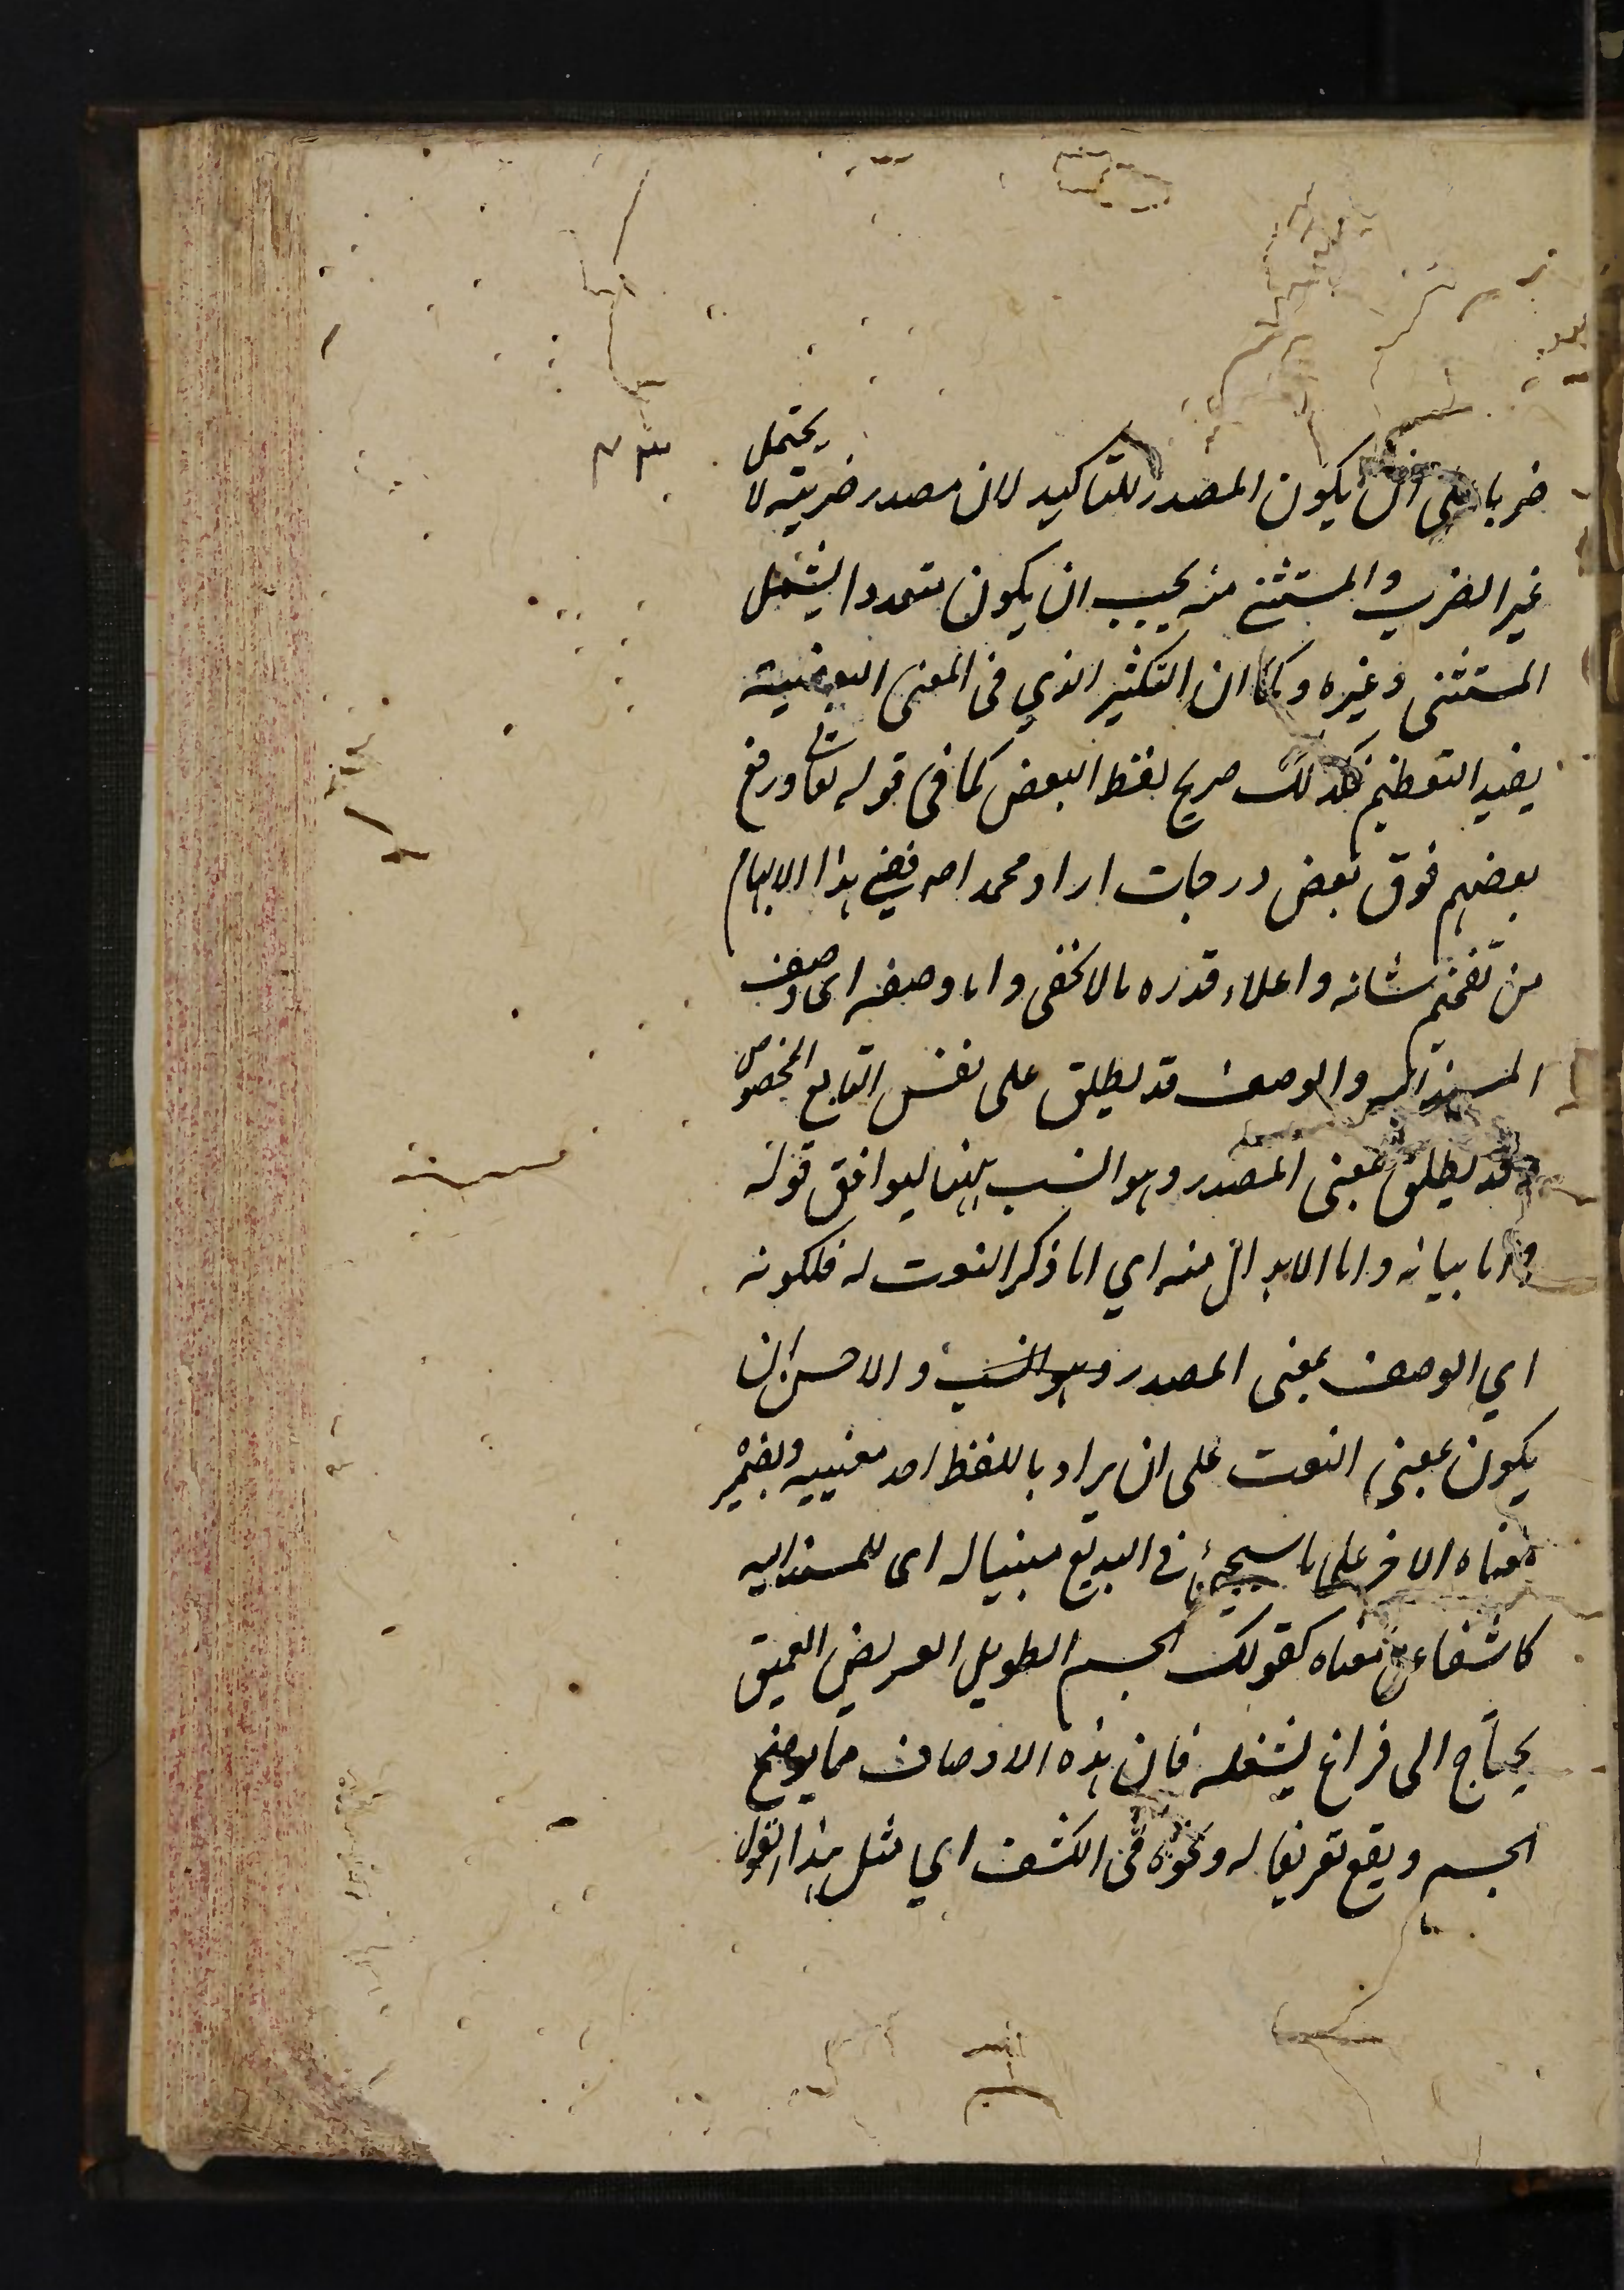 ضربا على ان يكون المصدر للتاكيد لان مصدر ضربته لا يحتمل
غير الضرب والمستثنى منه يجب ان يكون متعددا ليشمل
المستثنى وغيره وكما ان التنكير الذي في المعنى البعضية
يفيد التعظيم فكذلك صريح لفظ البعض كما في قوله تعالى ورفع
بعضهم فوق بعض درجات اراد محمدا صلى ففي هذا الابهام
من تفخيم شانه واعلاء قدره ما لا يخفى واما وصفه اى وصف
المسند اليه والوصف قد يطلق على نفس التابع المخصوص
وقد يطلق بمعنى المصدر وهو انسب ههنا ليوافق قوله
واما بيانه واما الابدال منه اي اما ذكر النعت له فلكونه
اي الوصف بمعنى المصدر وهو انسب والاحسن ان
يكون بمعنى النعت على ان يراد باللفظ احد معنييه وبضمير
معناه الاخر على ما سيجئ في البديع مبينا له اى للمسند اليه
كاشفا عن معناه كقولك الجسم الطويل العريض العميق
يحتاج الى فراغ يشغله فان هذه الاوصاف مما يوضح
الجسم ويقع تعريفا له ونحوه في الكشف اي مثل هذا القول